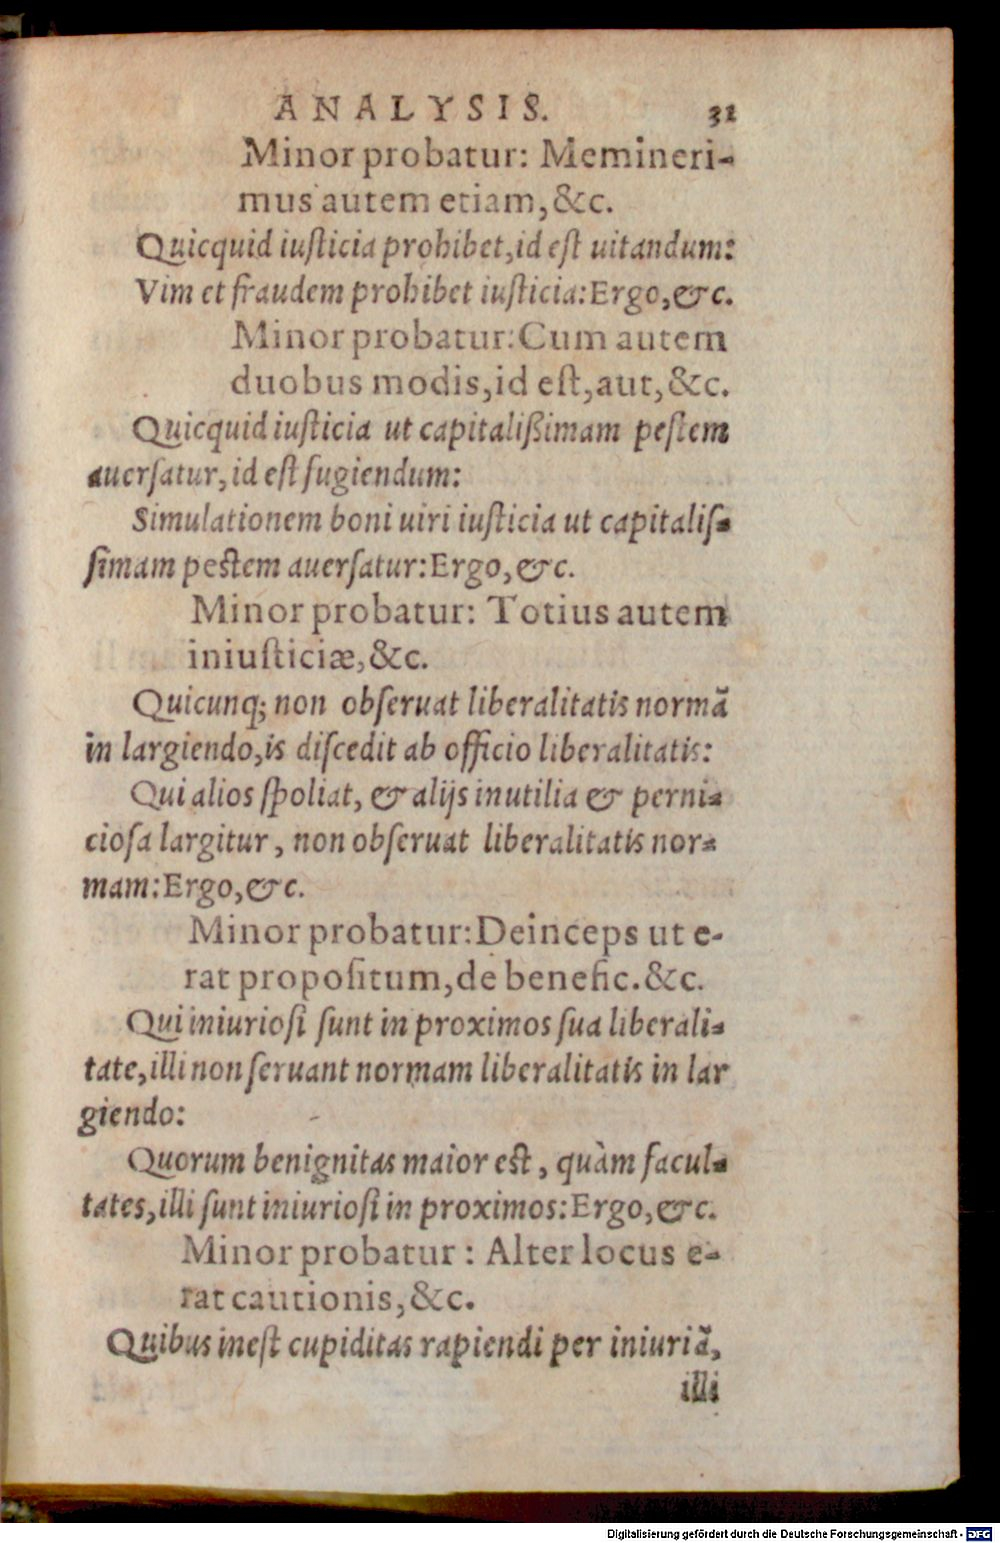 ANALYSIS. 31
Minor probatur: Memineri-
mus autem etiam, &c.
Quicquid iuſticia prohibet, id eſt uitandum:
Vim et fraudem prohibet iuſticia: Ergo, &c.
Minor probatur: Cum autem
duobus modis, id eſt, aut, &c.
Quicquid iuſticia ut capitalißimam peſtem
auerſatur, id eſt fugiendum:
Simulationem boni uiri iuſticia ut capitaliſ-
ſimam peſtem auerſatur: Ergo, &c.
Minor probatur: Totius autem
iniuſticiæ, &c.
Quicunq; non obſeruat liberalitatis normã
in largiendo, is diſcedit ab officio liberalitatis:
Qui alios ſpoliat, & alijs inutilia & perni-
cioſa largitur, non obſeruat liberalitatis nor-
mam: Ergo, &c.
Minor probatur: Deinceps ut e-
rat propoſitum, de benefic. &c.
Qui iniurioſi ſunt in proximos ſua liberali-
tate, illi non ſeruant normam liberalitatis in lar
giendo:
Quorum benignitas maior eſt, quàm facul-
tates, illi ſunt iniurioſi in proximos: Ergo, &c.
Minor probatur: Alter locus e-
rat cautionis, &c.
Quibus ineſt cupiditas rapiendi per iniuriã,
illi
Digitalisierung gefördert durch die Deutsche Forschungsgemeinschaft - DFG